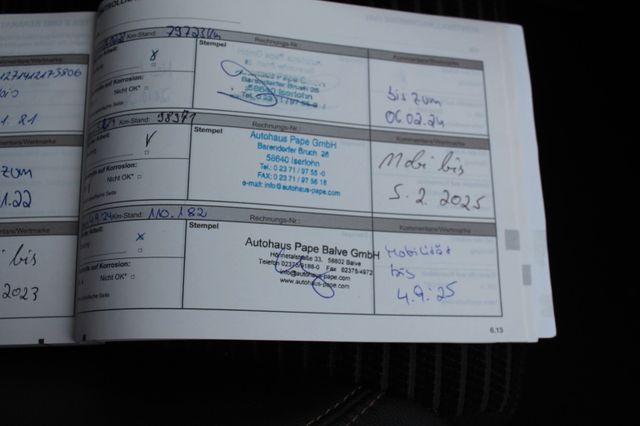 KONTROLLA
Km-Stand: 79723km
Rechnungs-Nr.:
Stempel
Kommentare/Wertmarke
Nicht OK*
Autohaus Pape GmbH
Barendorfer Bruch 26
58640 Iserlohn
bis zum
06.02.24
Km-Stand: 98371
Rechnungs-Nr.:
Stempel
Kommentare/Wertmarke
auf Korrosion:
Nicht OK*
Autohaus Pape GmbH
Barendorfer Bruch 26
58640 Iserlohn
Tel.: 0 23 71 / 97 55 -0
FAX 0 23 71 / 97 56 18
e-mail: info@autohaus-pape.com
Mobi bis
5. 2. 2025
Km-Stand: 110.182
Rechnungs-Nr.:
Stempel
Kommentare/Wertmarke
auf Korrosion:
Nicht OK*
Autohaus Pape Balve GmbH
Hönnetalstraße 33, 58802 Balve
Telefon 02375/9188-0 Fax 02375/4972
info@autohaus-pape.com
www.autohaus-pape.com
Mobilität
bis
4.9.'25
6.13
mentare/Wertmarke
1271412175806
bis
1.21
zum
1.22
bis
2023